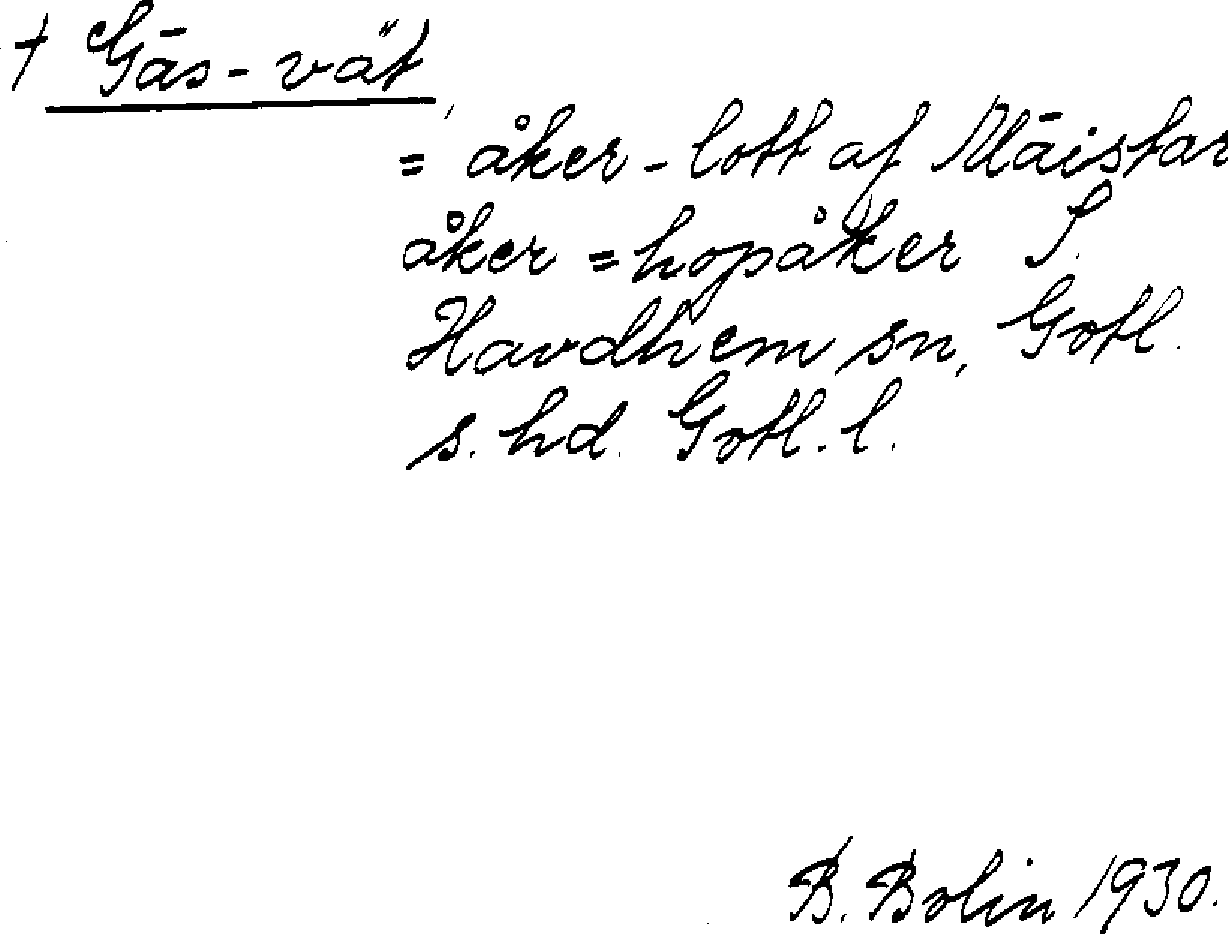 † Gās-vät,
= åker-lott af Māistar
åker = hopåker S.
Havdhem sn, Gotl.
s. hd. Gotl. l.
B. Bolin 1930.